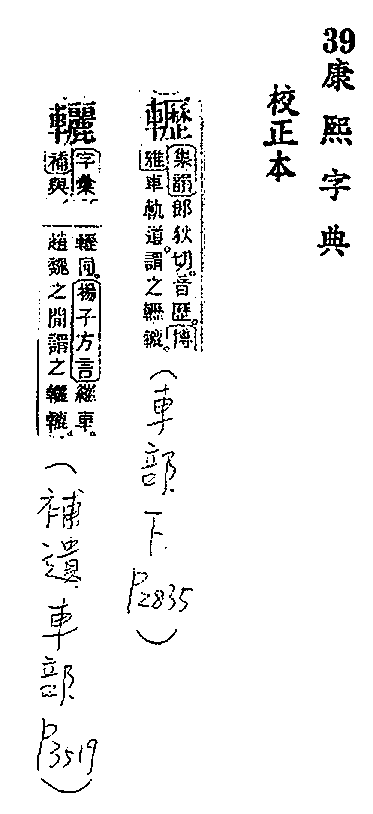 39康熙字典
校正本
轣
集韻郎狄切。音歷。博
雅車軌道謂之轣轆。
(車部下P2835)
字彙
補與
轣同。揚子方言繀車。
趙魏之閒謂之轣轆
(補遺車部P3519)